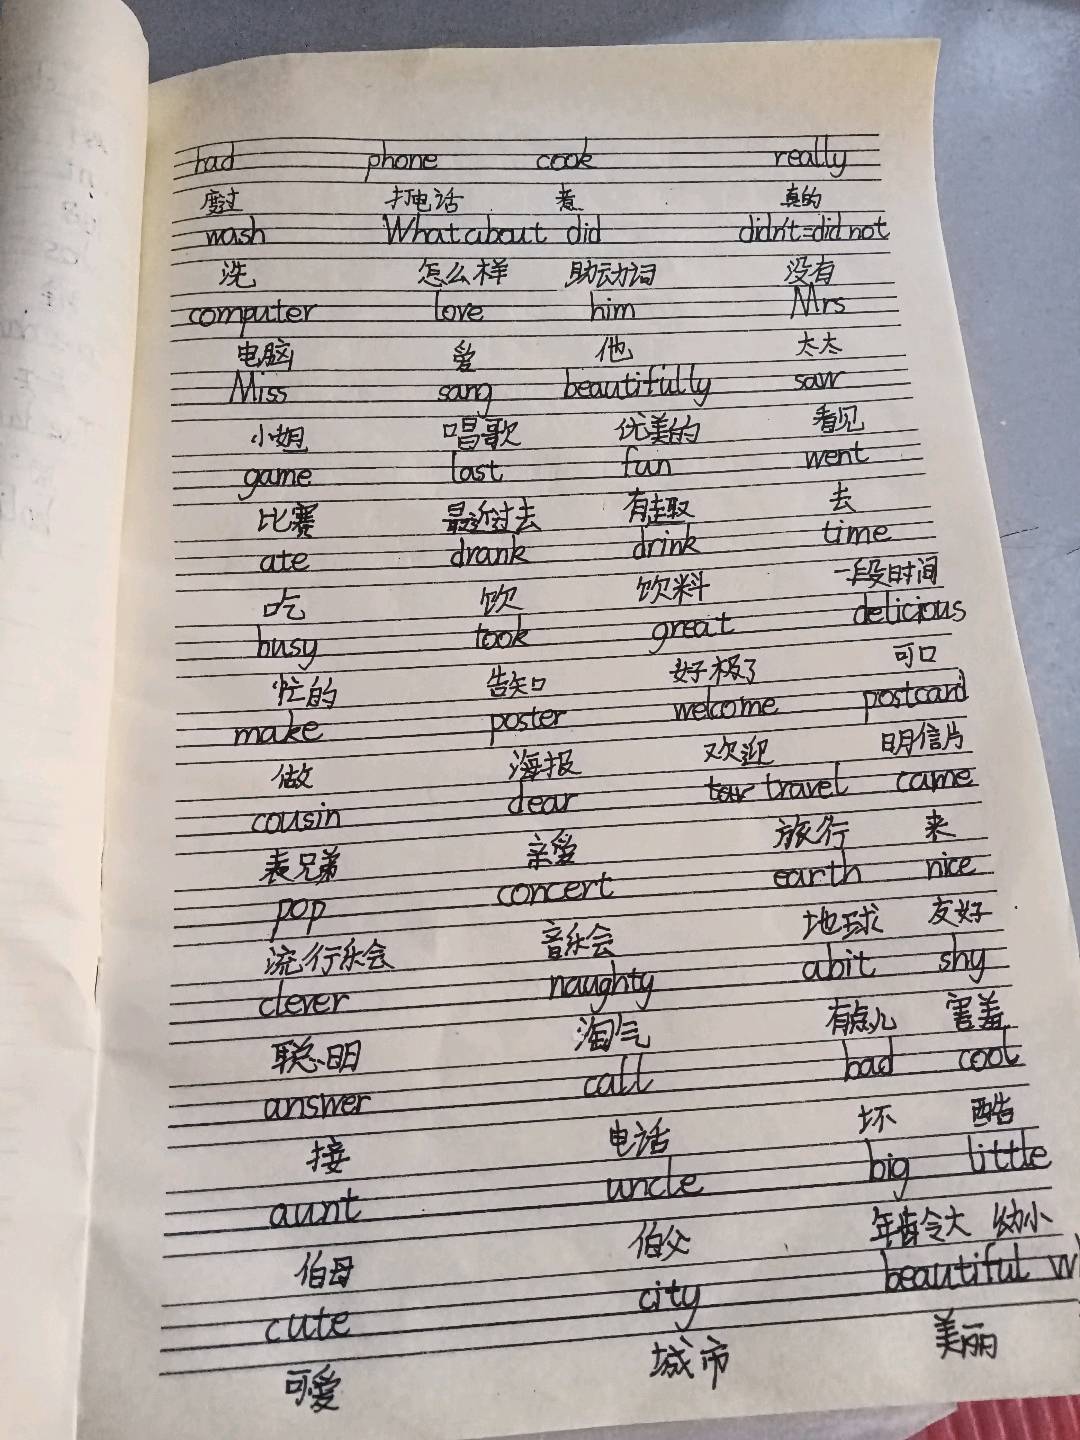 had phone cook really
度过 打电话 煮 真的
wash What about did didn't=did not
洗 怎么样 助动词 没有
computer love him Mrs
电脑 爱 他 太太
Miss sang beautifully saw
小姐 唱歌 优美的 看见
game last fun went
比赛 最近过去 有趣 去
ate drank drink time
吃 饮 饮料 一段时间
busy took great delicious
忙的 告知 好极了 可口
make poster welcome postcard
做 海报 欢迎 明信片
cousin dear travel came
表兄弟 亲爱 旅行 来
pop concert earth nice
流行乐会 音乐会 地球 友好
clever naughty abit shy
聪明 淘气 有点儿 害羞
answer call bad cool
接 电话 坏 酷
aunt uncle big little
伯母 伯父 年龄大 幼小
cute city beautiful
可爱 城市 美丽